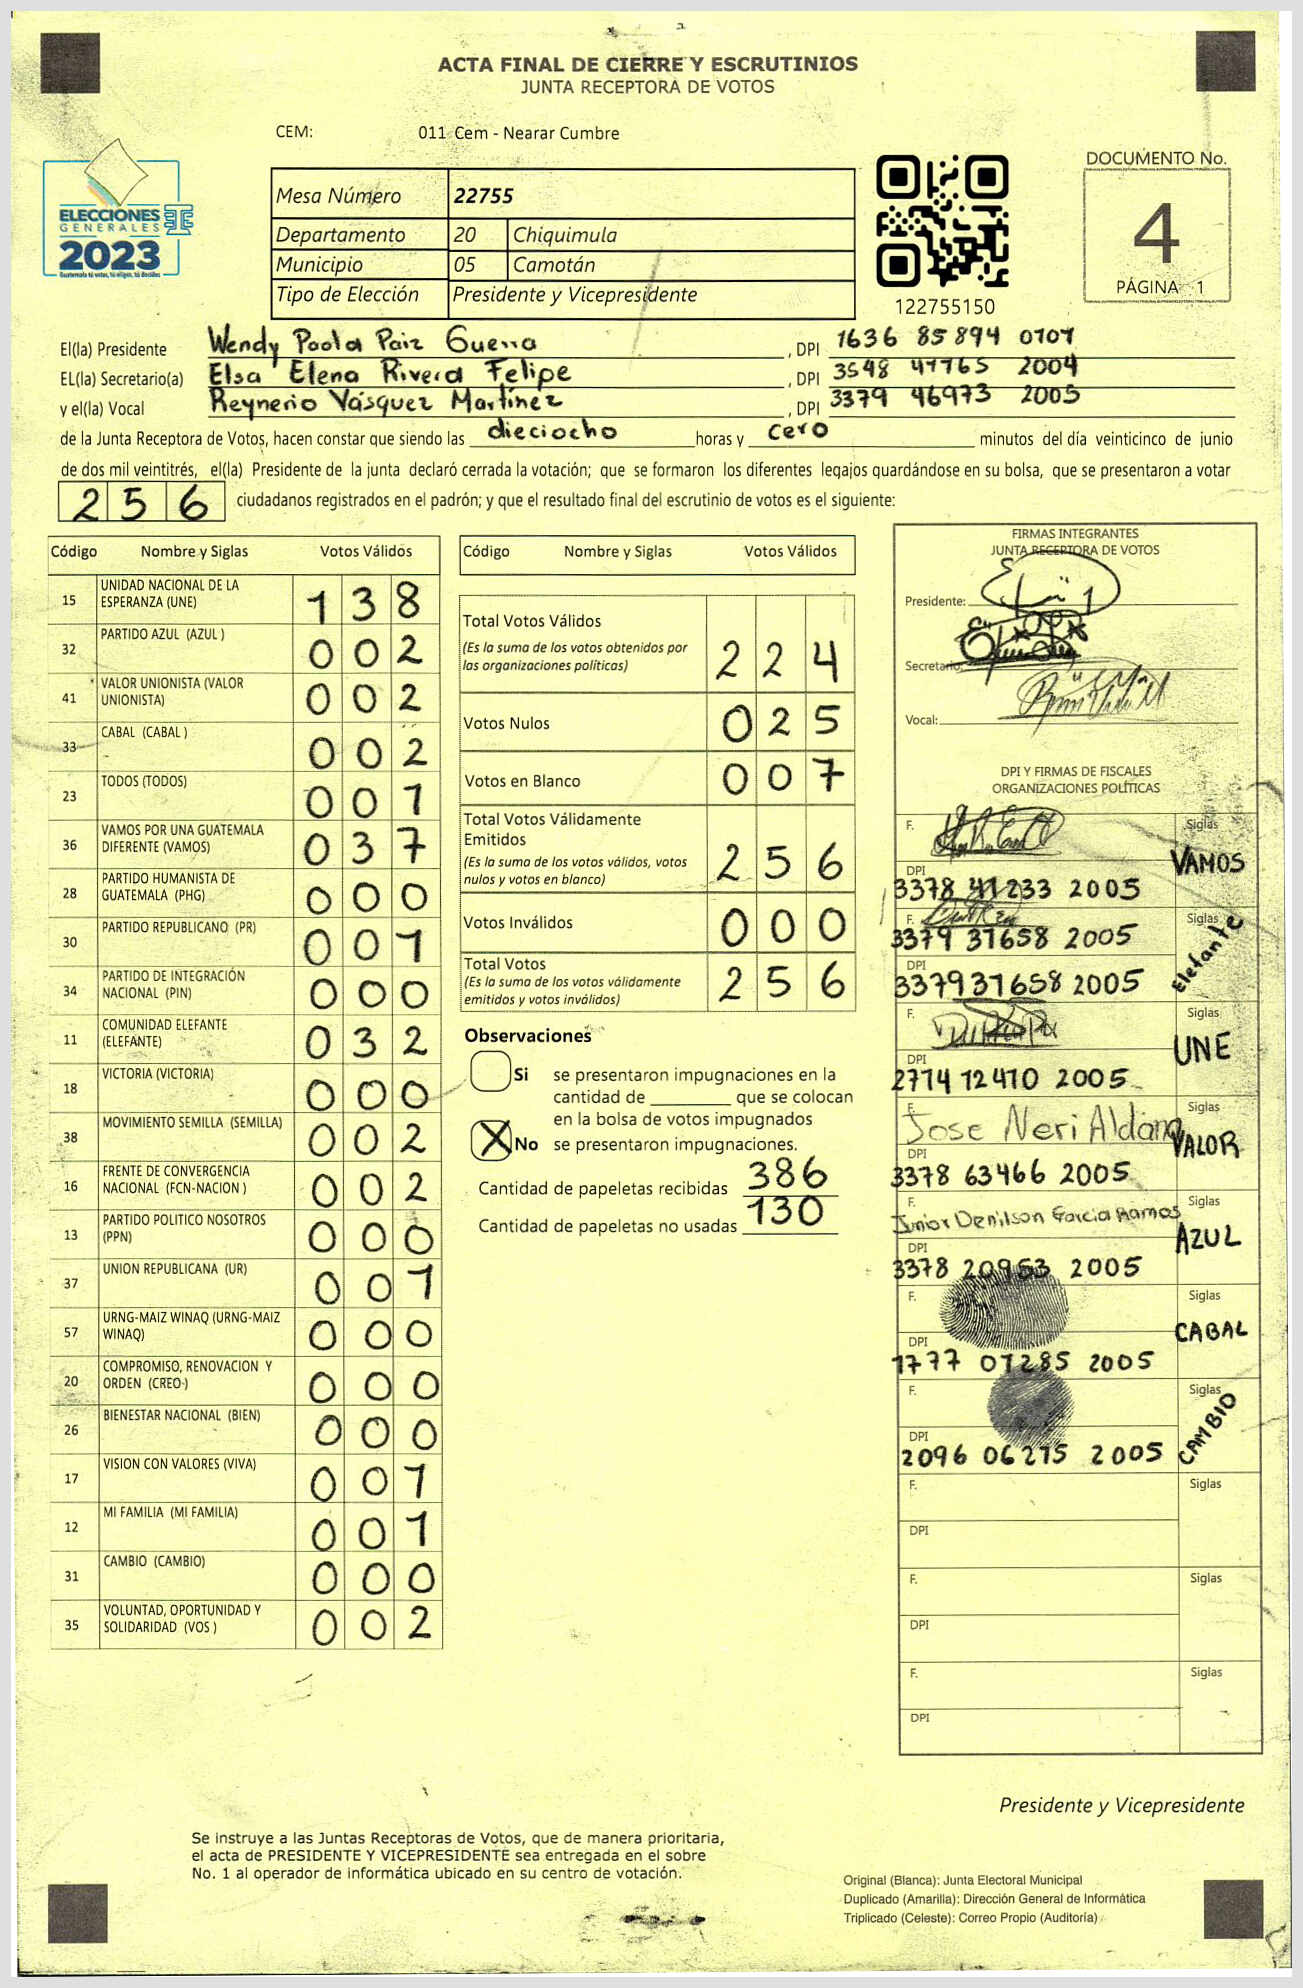 ACTA FINAL DE CIERRE Y ESCRUTINIOS
JUNTA RECEPTORA DE VOTOS
CEM: 011 Cem - Nearar Cumbre
ELECCIONES
GENERALES
2023
Guatemala tú votas, tú eliges, tú decides
Mesa Número 22755
Departamento 20 Chiquimula
Municipio 05 Camotán
Tipo de Elección Presidente y Vicepresidente
122755150
DOCUMENTO No.
4
PÁGINA 1
El(la) Presidente Wendy Paola Paiz Guerra , DPI 1636 85894 0101
EL(la) Secretario(a) Elsa Elena Rivera Felipe , DPI 3548 47765 2004
y el(la) Vocal Reynerio Vásquez Martínez , DPI 3379 46973 2005
de la Junta Receptora de Votos, hacen constar que siendo las dieciocho horas y cero minutos del día veinticinco de junio
de dos mil veintitrés, el(la) Presidente de la junta declaró cerrada la votación; que se formaron los diferentes legajos quardándose en su bolsa, que se presentaron a votar
256 ciudadanos registrados en el padrón; y que el resultado final del escrutinio de votos es el siguiente:
Código Nombre y Siglas Votos Válidos
15 UNIDAD NACIONAL DE LA ESPERANZA (UNE) 138
32 PARTIDO AZUL (AZUL ) 002
41 VALOR UNIONISTA (VALOR UNIONISTA) 002
33 CABAL (CABAL ) 002
23 TODOS (TODOS) 001
36 VAMOS POR UNA GUATEMALA DIFERENTE (VAMOS) 037
28 PARTIDO HUMANISTA DE GUATEMALA (PHG) 000
30 PARTIDO REPUBLICANO (PR) 001
34 PARTIDO DE INTEGRACIÓN NACIONAL (PIN) 000
11 COMUNIDAD ELEFANTE (ELEFANTE) 032
18 VICTORIA (VICTORIA) 000
38 MOVIMIENTO SEMILLA (SEMILLA) 002
16 FRENTE DE CONVERGENCIA NACIONAL (FCN-NACION ) 002
13 PARTIDO POLITICO NOSOTROS (PPN) 000
37 UNION REPUBLICANA (UR) 001
57 URNG-MAIZ WINAQ (URNG-MAIZ WINAQ) 000
20 COMPROMISO, RENOVACION Y ORDEN (CREO ) 000
26 BIENESTAR NACIONAL (BIEN) 000
17 VISION CON VALORES (VIVA) 001
12 MI FAMILIA (MI FAMILIA) 001
31 CAMBIO (CAMBIO) 000
35 VOLUNTAD, OPORTUNIDAD Y SOLIDARIDAD (VOS ) 002
Código Nombre y Siglas Votos Válidos
Total Votos Válidos
(Es la suma de los votos obtenidos por
las organizaciones políticas) 224
Votos Nulos 025
Votos en Blanco 007
Total Votos Válidamente
Emitidos
(Es la suma de los votos válidos, votos
nulos y votos en blanco) 256
Votos Inválidos 000
Total Votos
(Es la suma de los votos válidamente
emitidos y votos inválidos) 256
Observaciones
Si se presentaron impugnaciones en la
cantidad de ________ que se colocan
en la bolsa de votos impugnados
X No se presentaron impugnaciones.
Cantidad de papeletas recibidas 386
Cantidad de papeletas no usadas 130
FIRMAS INTEGRANTES
JUNTA RECEPTORA DE VOTOS
Presidente:
Secretario:
Vocal:
DPI Y FIRMAS DE FISCALES
ORGANIZACIONES POLÍTICAS
F. Siglas VAMOS
DPI 3378 41233 2005
F. 3379 31658 2005 Siglas Elefante
DPI 3379 31658 2005
F. Siglas UNE
DPI 2774 12410 2005
F. Jose Neri Aldana Siglas VALOR
DPI 3378 63466 2005
F. Junior Denilson Garcia Ramos Siglas AZUL
DPI 3378 20953 2005
F. Siglas CABAL
DPI 1777 01285 2005
F. Siglas CAMBIO
DPI 2096 06275 2005
F. Siglas
DPI
F. Siglas
DPI
F. Siglas
DPI
Presidente y Vicepresidente
Se instruye a las Juntas Receptoras de Votos, que de manera prioritaria,
el acta de PRESIDENTE Y VICEPRESIDENTE sea entregada en el sobre
No. 1 al operador de informática ubicado en su centro de votación.
Original (Blanca): Junta Electoral Municipal
Duplicado (Amarilla): Dirección General de Informática
Triplicado (Celeste): Correo Propio (Auditoría)